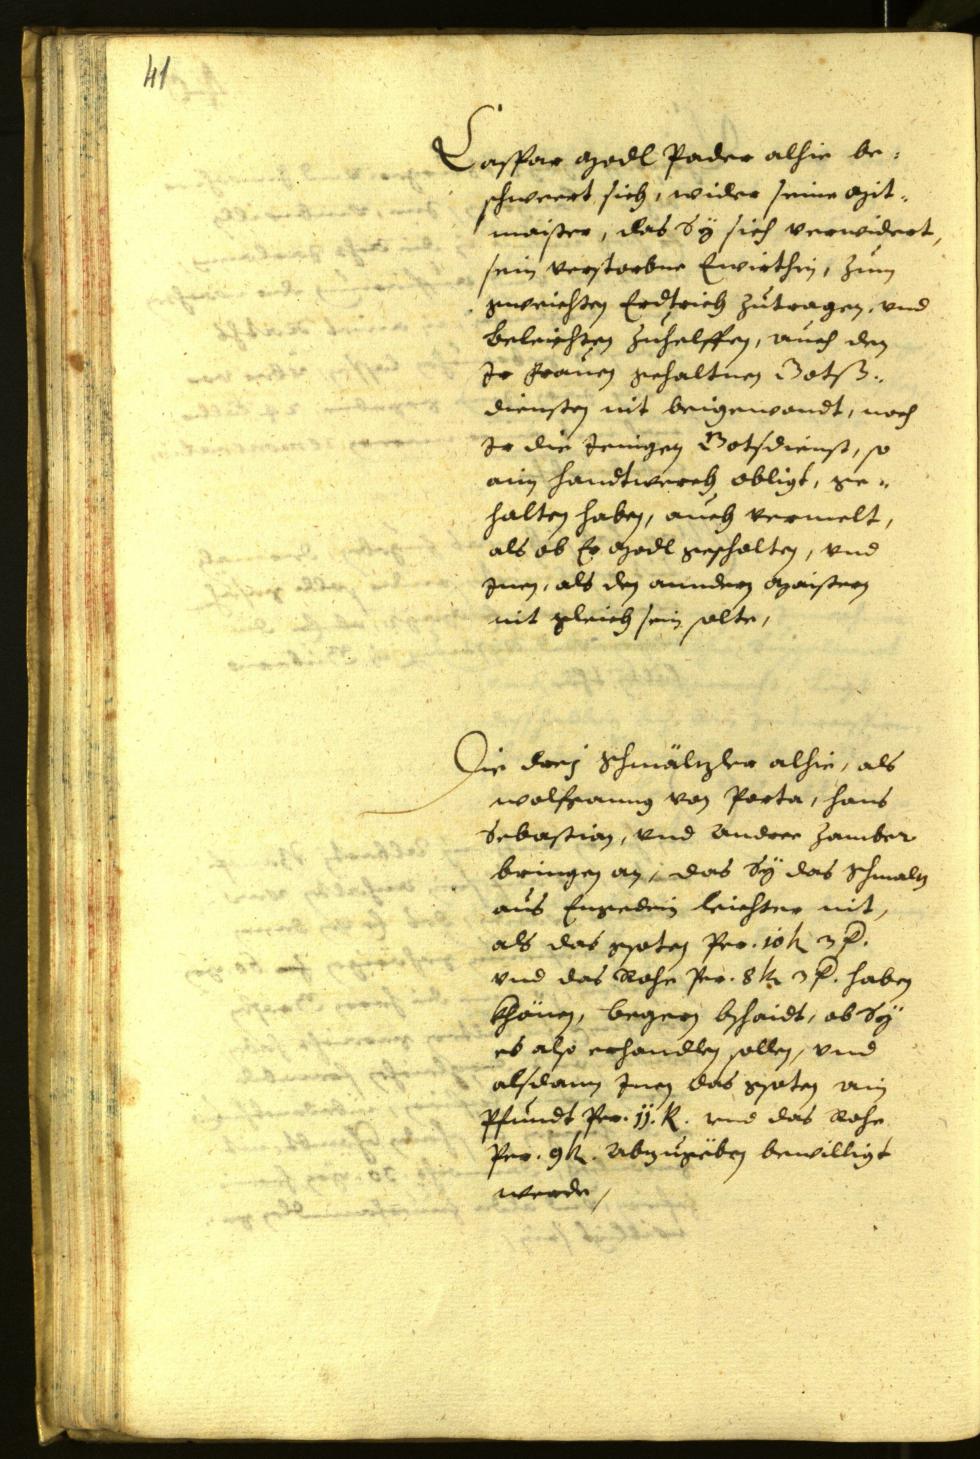 41
Casspar Modl Pader alhie be„
schwert sich, wider seine Mit„
maister, das Sÿ sich verwidert,
sein verstorbne Ewirthin, zum
geweichten Erdtrich zutragen, vnd
beleichten zuhelffen, auch den
Ir frauen gehaltnen Gotß„
diensten nit beigewondt, noch
Ir die Jenigen Gotsdienst, so
aim handtwerch obligt, ge„
halten haben, auch vermelt,
als ob Er Modl gescholten, vnd
Inen, als den anndern Maistern
nit gleich sein solte,
Die dreÿ Schmältzler alhie, als
Wolfganng von Porta, Hans
Sebastian, vnd Andree Zamber
bringen an, das Sÿ das Schmaltz
aus Engedein leichter nit,
als das gsoten per. 10 k 3 d.
vnd das Rohe per. 8 k 3 d. haben
khönen, begern bschaidt, ob Sÿ
es also erhandlen sollen, vnd
alsdann Inen das gsoten ain
Pfundt per. 11. k. vnd das Rohe
per. 9 k. abzugëben bewilligt
werde,